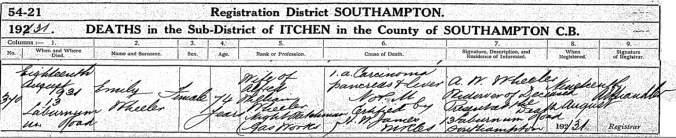 54-21
Registration District SOUTHAMPTON.
1931. DEATHS in the Sub-District of ITCHEN in the County of SOUTHAMPTON C.B.
Columns:— 1. 2. 3. 4. 5. 6. 7. 8. 9.
No. When and Where Died. Name and Surname. Sex. Age. Rank or Profession. Cause of Death. Signature, Description, and Residence of Informant. When Registered. Signature of Registrar.
370
Eighteenth
August
1931
13
Laburnum
Road
Emily
Wheeler
Female
74
Years
Wife of
Alfred
William
Wheeler
Night Watchman
Gas Works
1.a. Carcinoma
pancreas & liver
No P.M.
Certified by
W. James
A. W. Wheeler
Widower of Deceased
Present at the Death
13 Laburnum Road
Southampton
Nineteenth
August
1931
Registrar